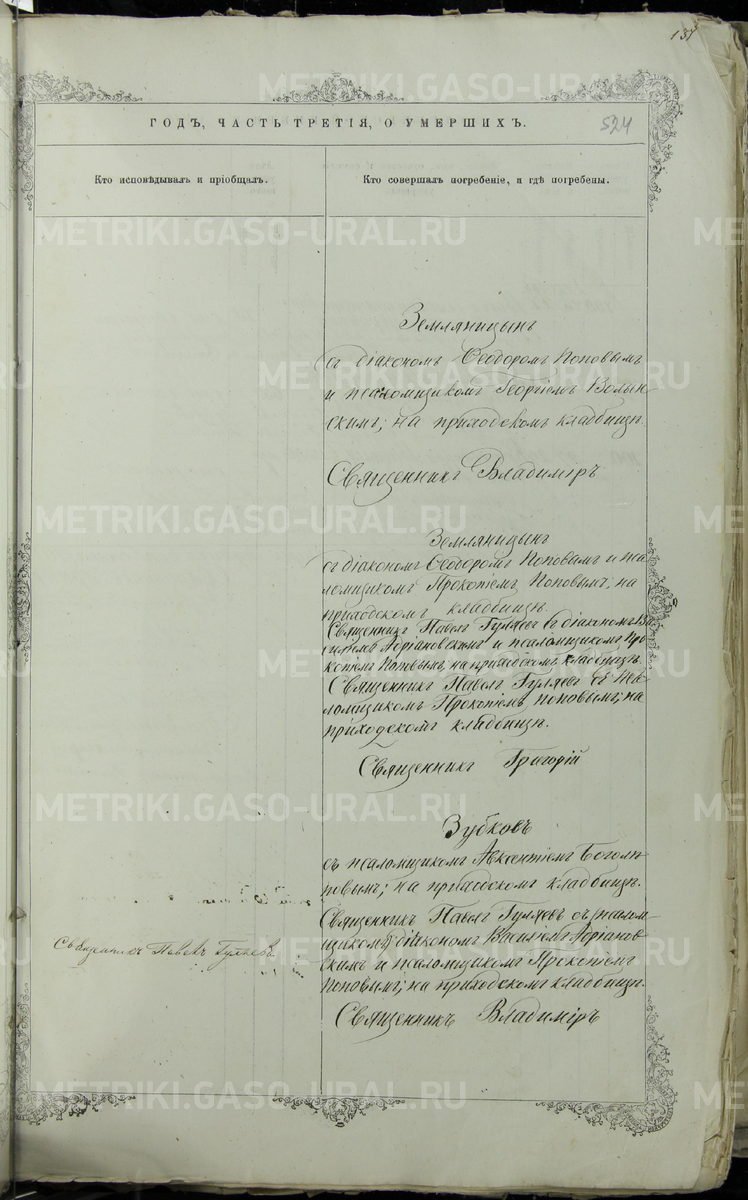 137
524
ГОДЪ, ЧАСТЬ ТРЕТІЯ, О УМЕРШИХЪ.
Кто исповѣдывалъ и пріобщалъ.
Кто совершалъ погребеніе, и гдѣ погребены.
Земляницынъ
съ діакономъ Ѳеодоромъ Поповымъ
и псаломщикомъ Георгіемъ Волын-
скимъ; на приходскомъ кладбищѣ.
Священникъ Владиміръ
Земляницынъ
съ діакономъ Ѳеодоромъ Поповымъ и пса-
ломщикомъ Прокопіемъ Поповымъ; на
приходскомъ кладбищѣ.
Священникъ Павелъ Гуляевъ съ діакономъ Ва-
силіемъ Адріановскимъ и псаломщикомъ Про-
копіемъ Поповымъ, на приходскомъ кладбищѣ.
Священникъ Павелъ Гуляевъ съ пса-
ломщикомъ Прокопіемъ Поповымъ; на
приходскомъ кладбищѣ.
Священникъ Григорій
Зубковъ
съ псаломщикомъ Авксентіемъ Боголя-
повымъ; на приходскомъ кладбищѣ.
Священникъ Павелъ Гуляевъ съ псалом-
щикомъ діакономъ Василіемъ Адріанов-
скимъ и псаломщикомъ Прокопіемъ
Поповымъ; на приходскомъ кладбищѣ.
Священникъ Павелъ Гуляевъ.
Священникъ Владиміръ
METRIKI.GASO-URAL.RU